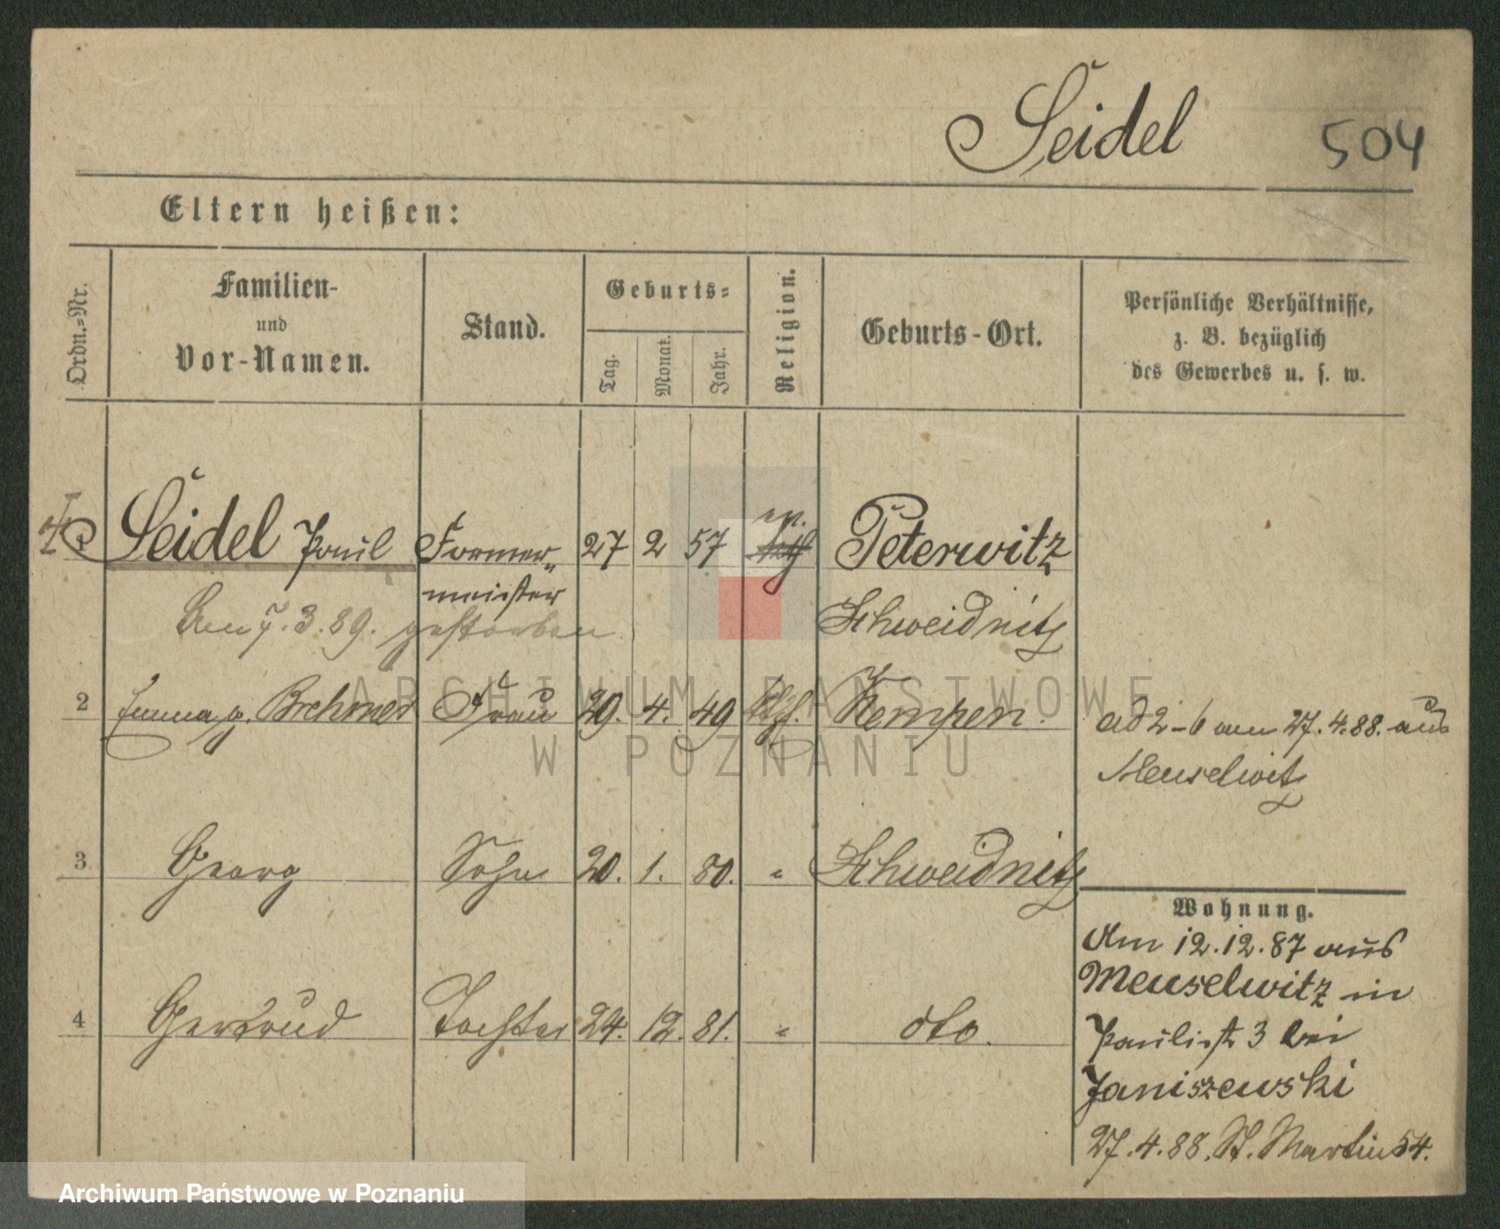 Seidel 504
Eltern heißen:
Ordn.-Nr.
Familien-
und
Vor-Namen.
Stand.
Geburts-
Tag.
Monat.
Jahr.
Religion.
Geburts-Ort.
Persönliche Verhältnisse,
z. B. bezüglich
des Gewerbes u. s. w.
1 Seidel Paul Former- 27 2 57 ev. Peterwitz
meister
Am 7.3.89. gestorben Schweidnitz
2 Emma g. Brehmer Frau 29. 4. 49 Kempen.
ad 2-6 am 27.4.88. aus
Meuselwitz
3 Georg Sohn 20. 1. 80. " Schweidnitz
4 Gertrud Tochter 24. 12. 81. " dto.
Wohnung.
Am 12.12.87 aus
Meuselwitz in
Paulist 3 bei
Janiszewski
27.4.88. St. Martin 54.
ARCHIWUM PAŃSTWOWE
W POZNANIU
Archiwum Państwowe w Poznaniu